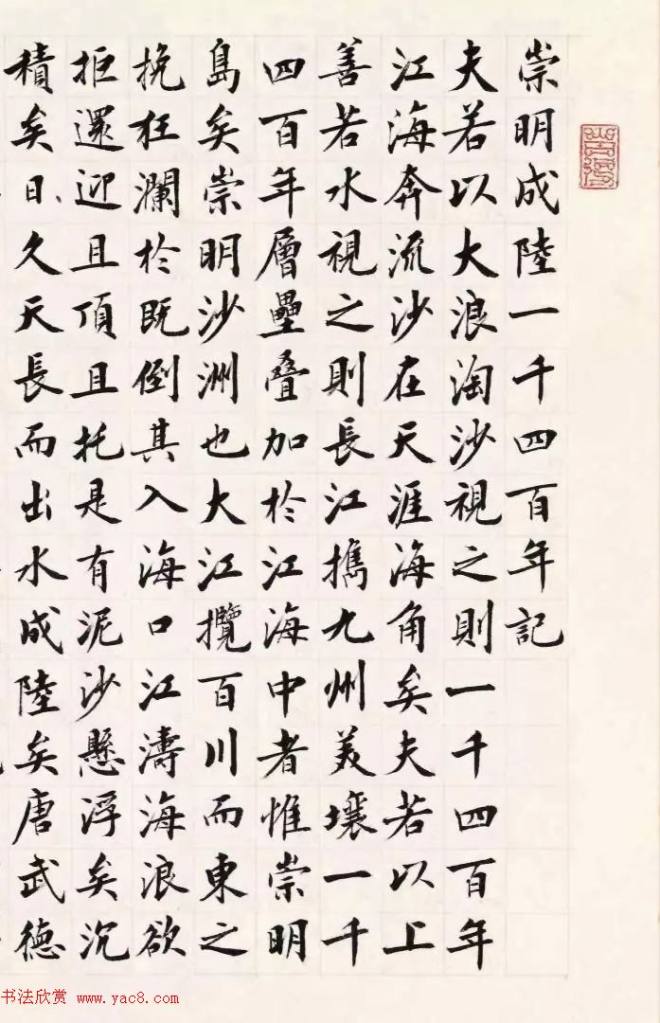 崇明成陸一千四百年記
夫若以大浪淘沙視之則一千四百年
江海奔流沙在天涯海角矣夫若以上
善若水視之則長江攜九州美壤一千
四百年層壘叠加於江海中者惟崇明
島矣崇明沙洲也大江攬百川而東之
挽狂瀾於既倒其入海口江濤海浪欲
拒還迎且頂且托是有泥沙懸浮矣沉
積矣日久天長而出水成陸矣唐武德
书法欣赏 www.yac8.com